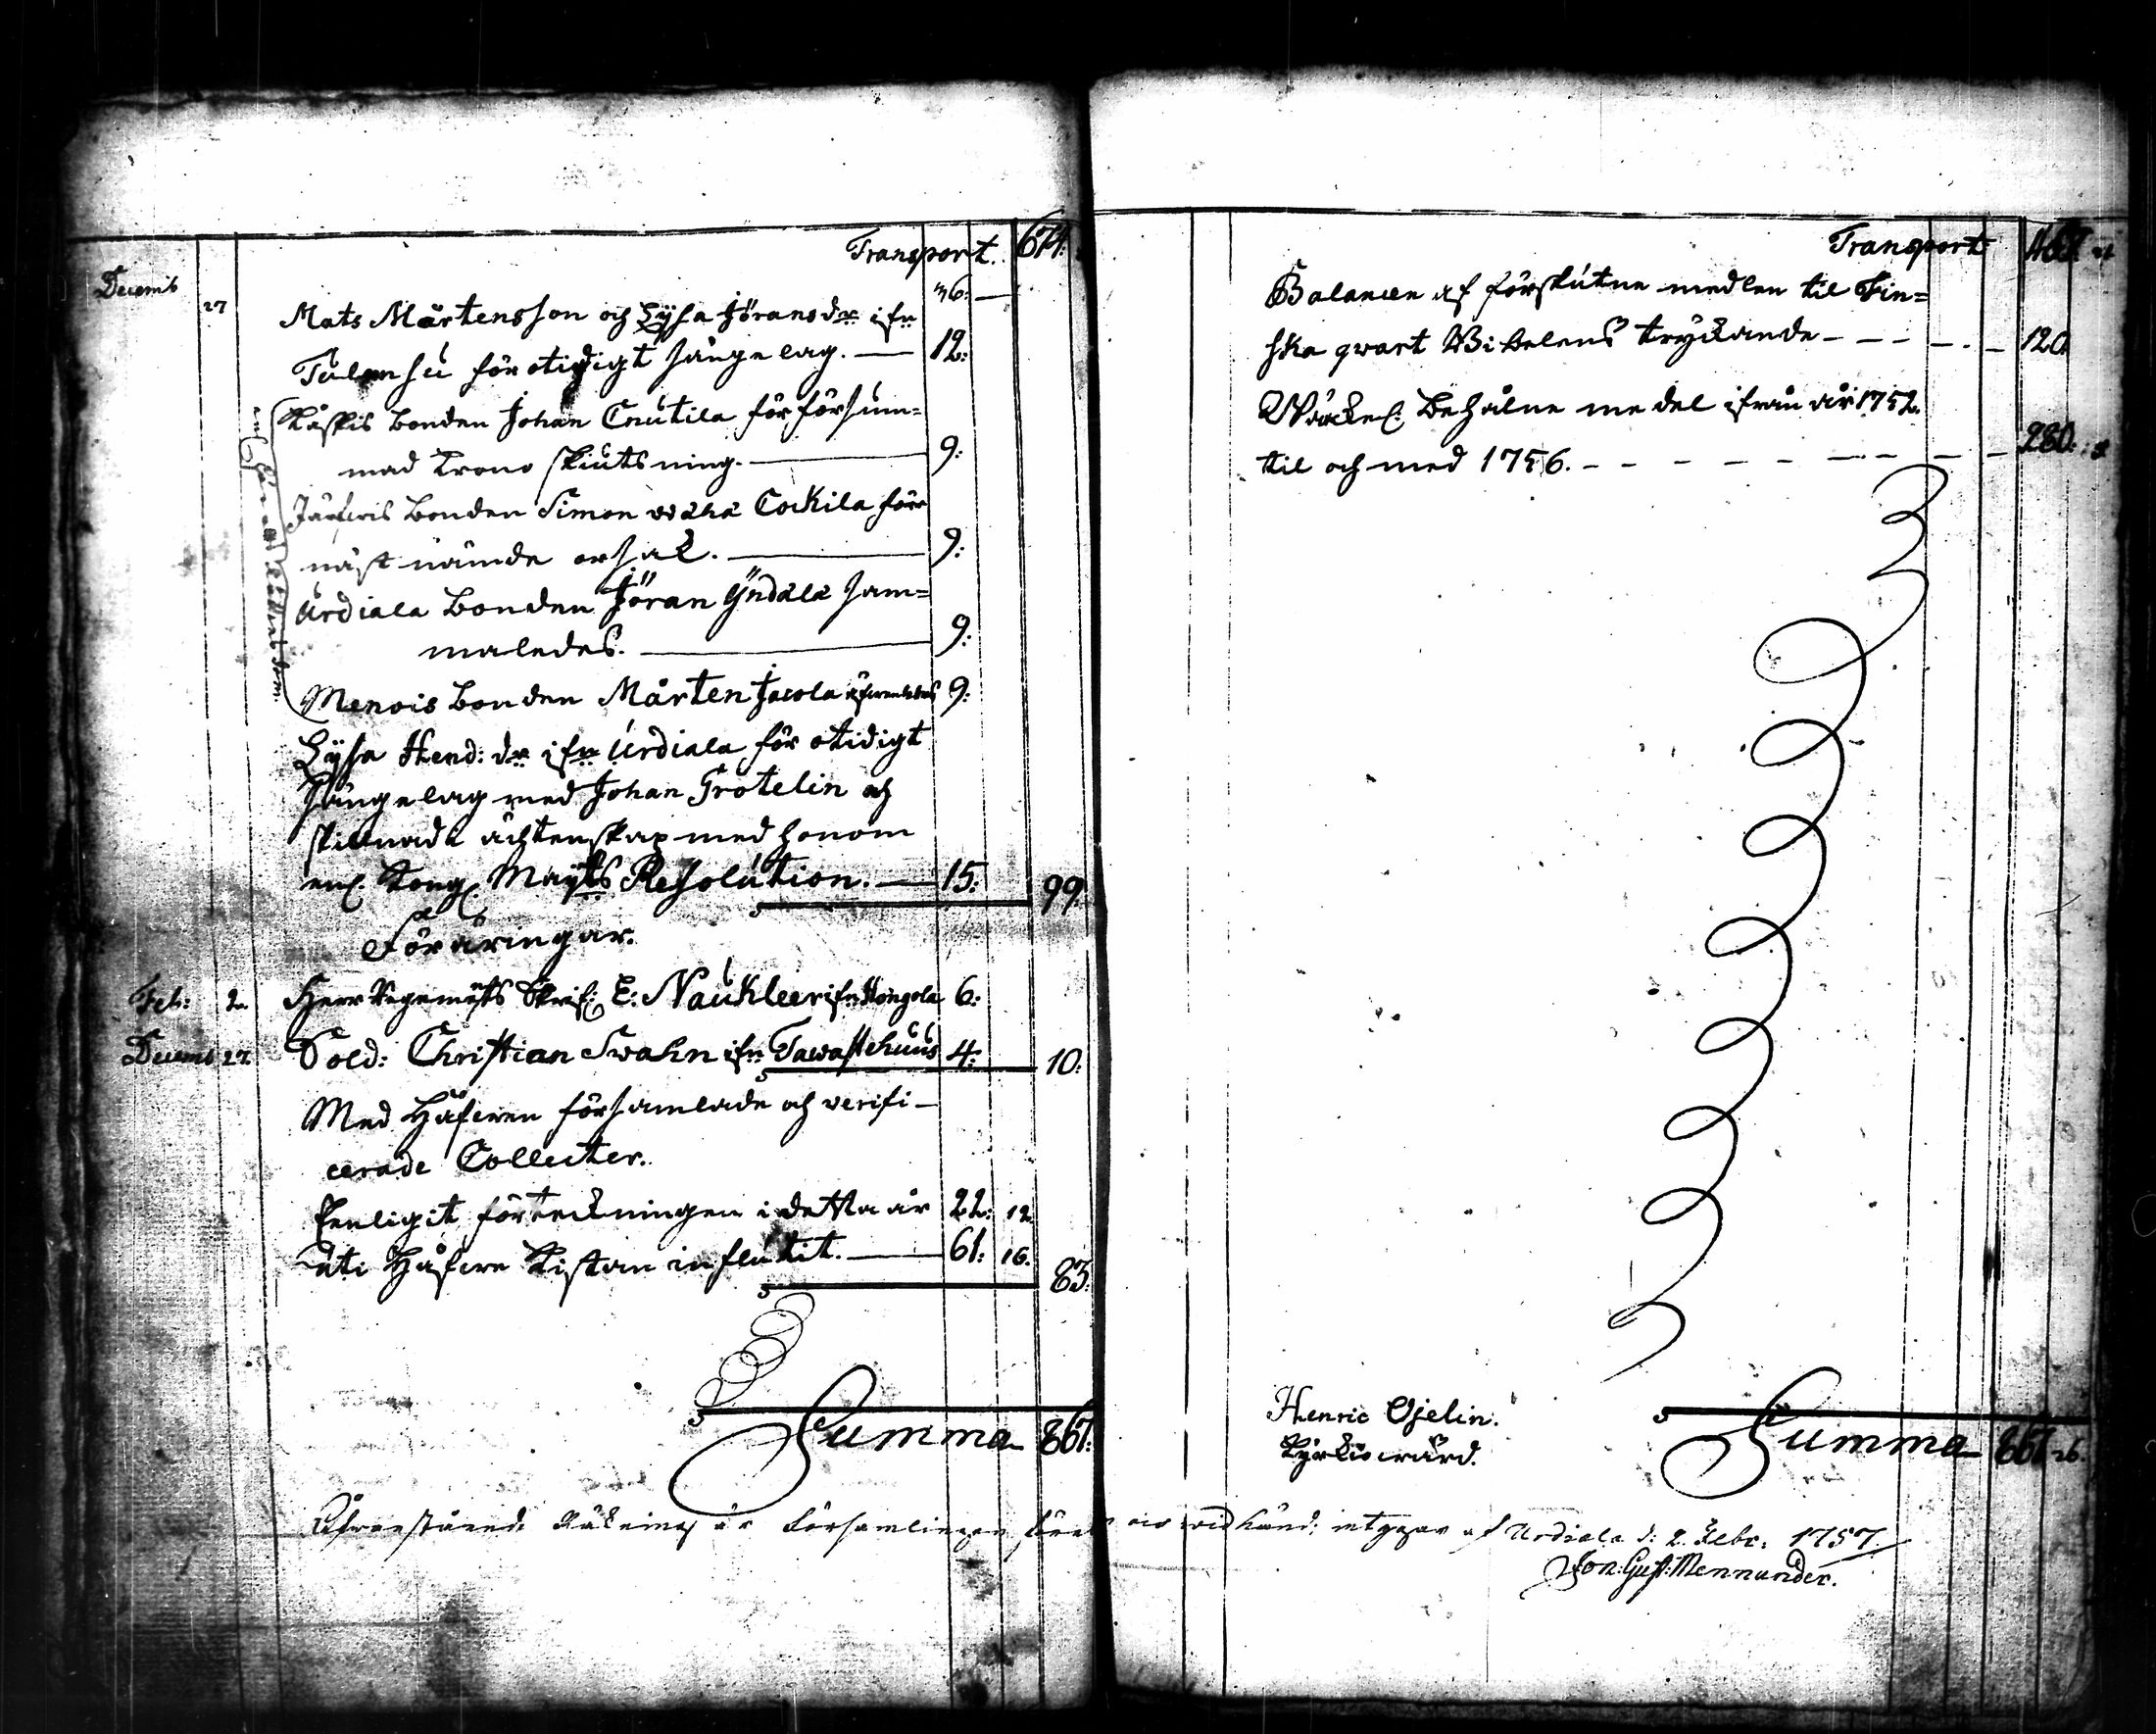 Transport. 674:
Decemb 36: —
27 Mats Mårtensson och Lysa Jöransdr ifrn
Tulensu för otidigt sängelag. — 12:
Kåskis bonden Johan Cnutila för försum=
mad Krono skiutsning. — 9:
bonden Simon Cockila förr
näst nämde orsak. — 9:
Urdiala bonden Jöran Yndälä sam=
maledes. — 9:
Menois bonden Mårten Jacola äfwenledes 9:
Lysa Hend: dr ifrn Urdiala för otidigt
sängelag med Johan Trotelin och
skillnad i ächtenskap med honom
enl. Kongl. Mayts Resolution. — 15: 99.
Föräringar.
Feb: 2. Herr Regemts Skrif: E: Naukleer ifrn Hongola 6:
Decemb 27. Sold: Christian Swahn ifrn Tawastehuus 4: 10:
Med Håfwen församlade och verifi-
cerade Collecter.
Enligit förteckningen i detta år 22: 12
uti Håfwe Kistan influtit. — 61: 16. 83:
Summa 867:
Transport
Balancen af förskutne medlen til Fin=
ska qwart Bibelens tryckande - - - - . - 120
behålne medel ifrån år 1752.
til och med 1756. - - - - - - - - - 280:
Henric Ojelin.
Kyrkiowärd.
Summa 867 26.
Ofwanstående Räkning är församlingen wid händ: intygar af Urdiala d: 2. Febr: 1757.
Jon: Gust: Mennander.